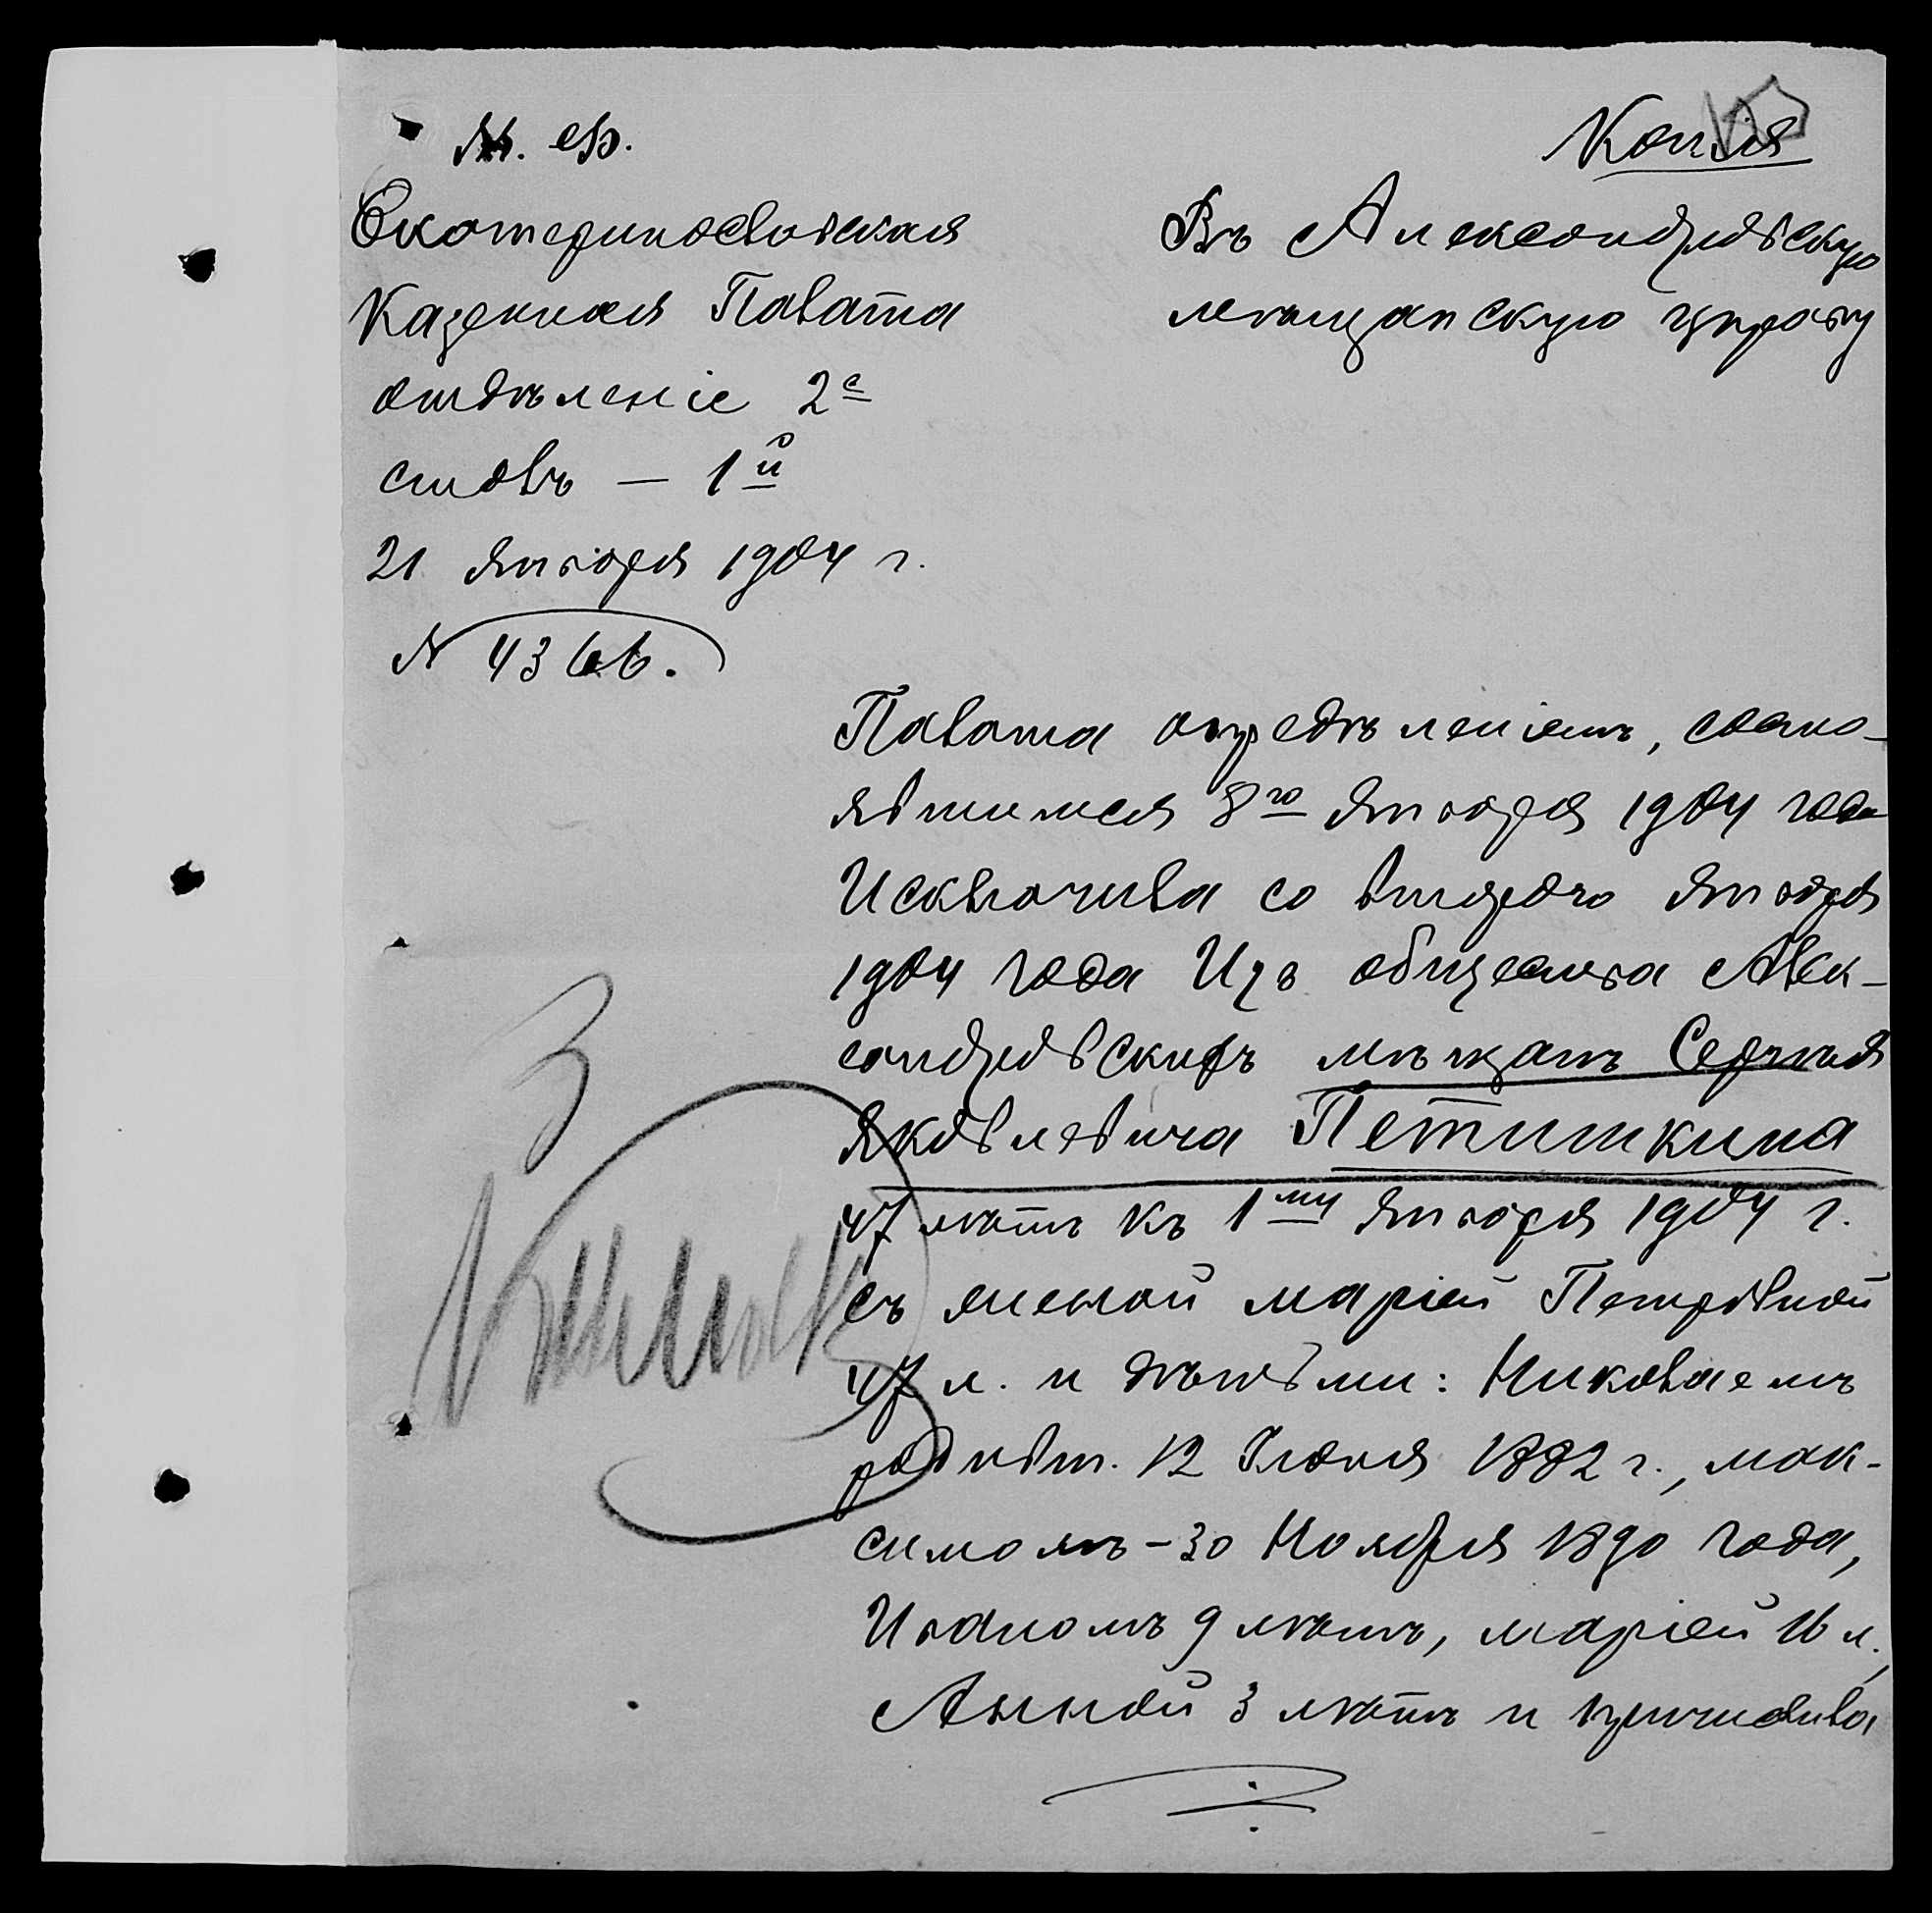 М. Ф.
Копія
Екатеринославская
Казенная Палата
отдѣленіе 2е
столъ — 1й
21 января 1904 г.
№ 4366.
Въ Александровскую
мѣщанскую управу
Палата опредѣленіемъ, состо-
явшимся 8го января 1904 года
Исключила со второго января
1904 года Изъ общества Алек-
сандровскихъ мѣщанъ Сергѣя
Яковлевича Петишкина
47 лѣтъ къ 1му января 1904 г.
съ женой Маріей Петровной
47 л. и дѣтьми: Николаемъ
родивш. 12 Іюня 1882 г., Мак-
симомъ – 30 Ноября 1890 года,
Иваномъ 9 лѣтъ, Маріей 16 л.,
Анной 3 лѣтъ и причислила